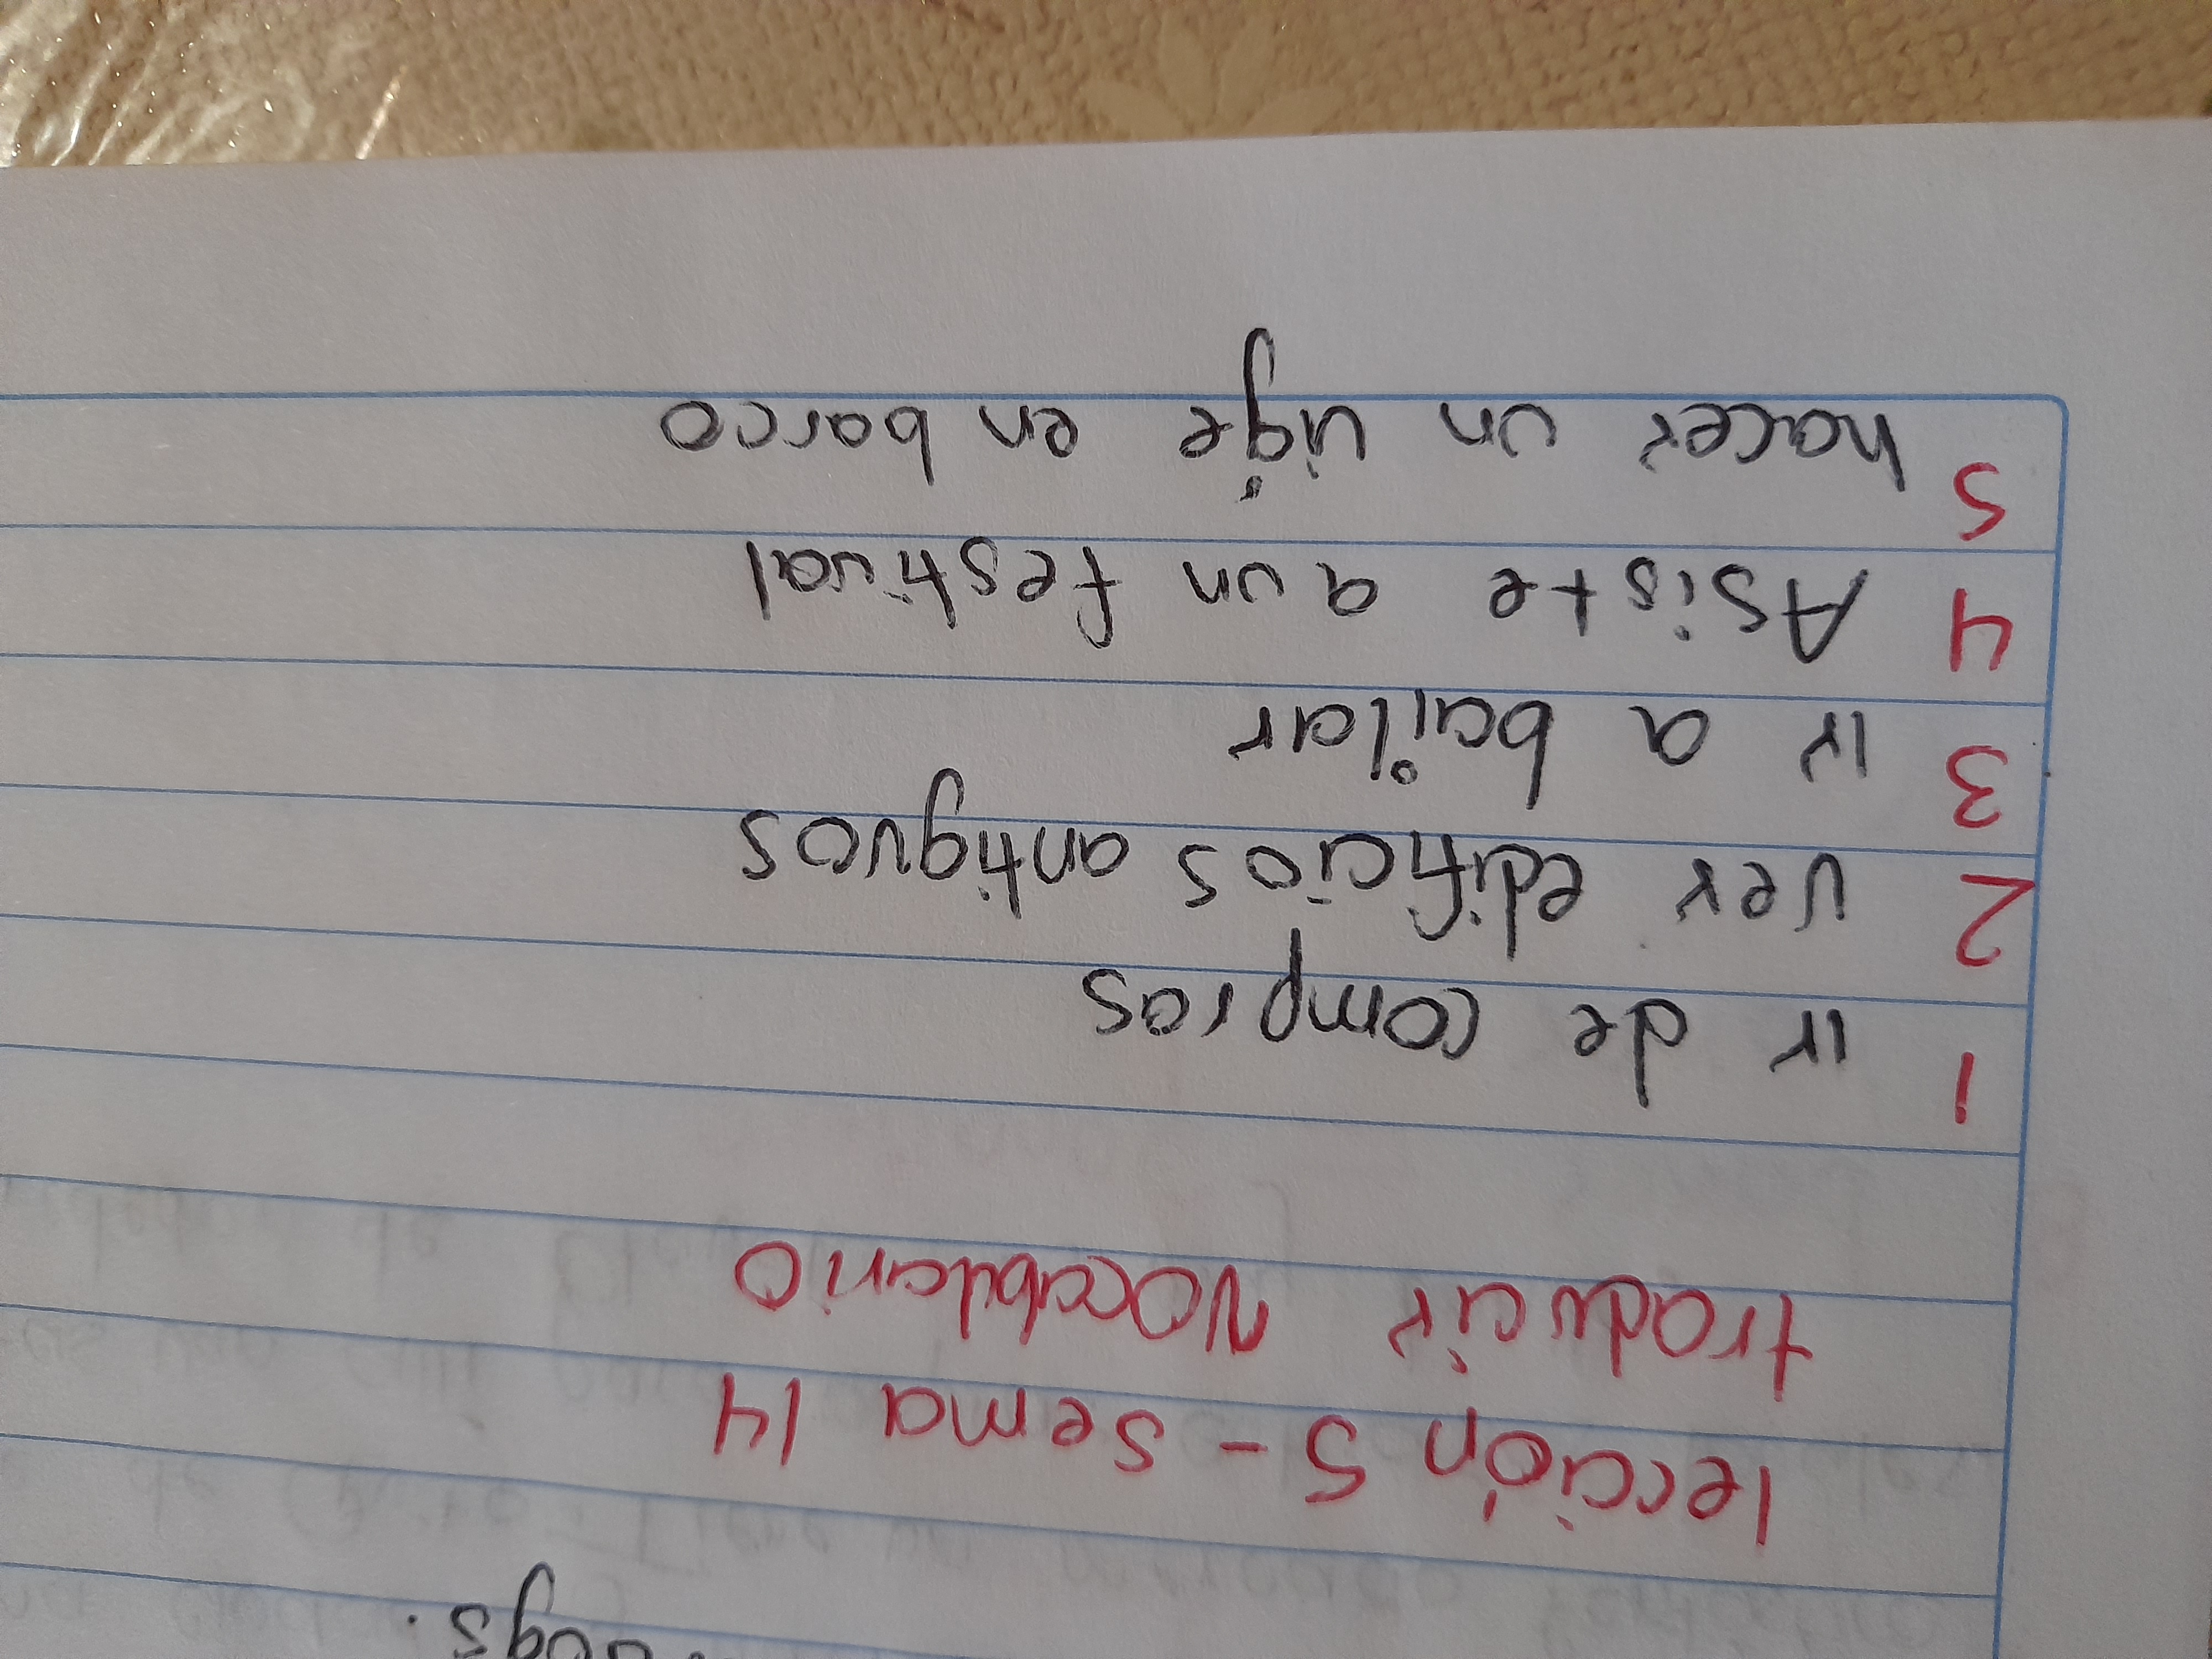 lección 5 - sema 14
traducir Vocabulario
1 ir de compras
2 ver edificios antiguos
3 ir a bailar
4 Asiste a un festival
5 hacer un viaje en barco